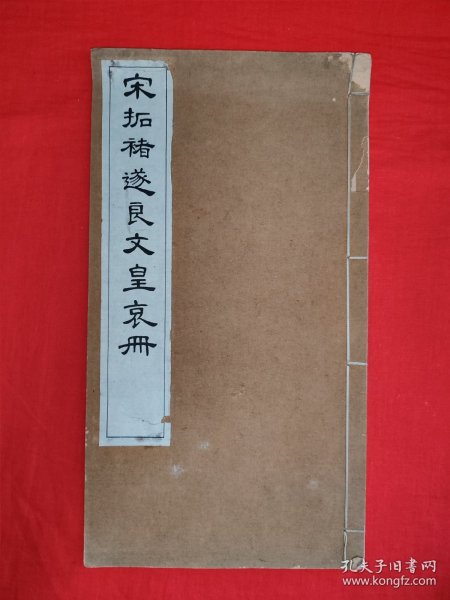 宋拓褚遂良文皇哀冊
孔夫子旧书网
www.kongfz.com